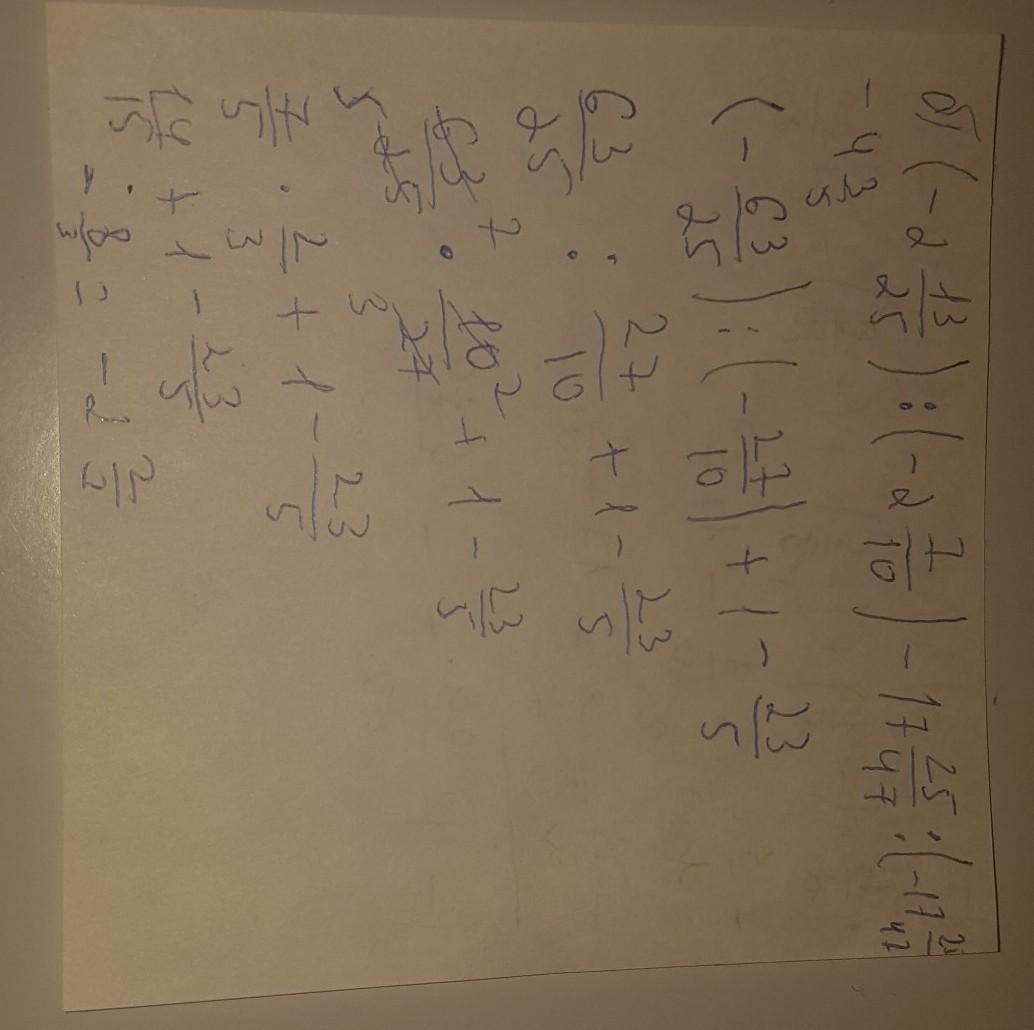 б) (-2 13/25) : (-2 7/10) - 17 25/47 : (-17 25/47
- 4 3/5
(- 63/25) : (- 27/10) + 1 - 23/5
63/25 : 27/10 + 1 - 23/5
63 7/5 25 · 10 2/3 27 + 1 - 23/5
7/5 · 2/3 + 1 - 23/5
14/15 + 1 - 23/5
- 8/3 = - 2 2/3